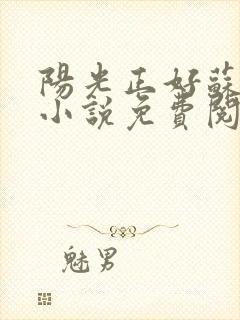 陽光正好蘇
小說免費閱
魅男